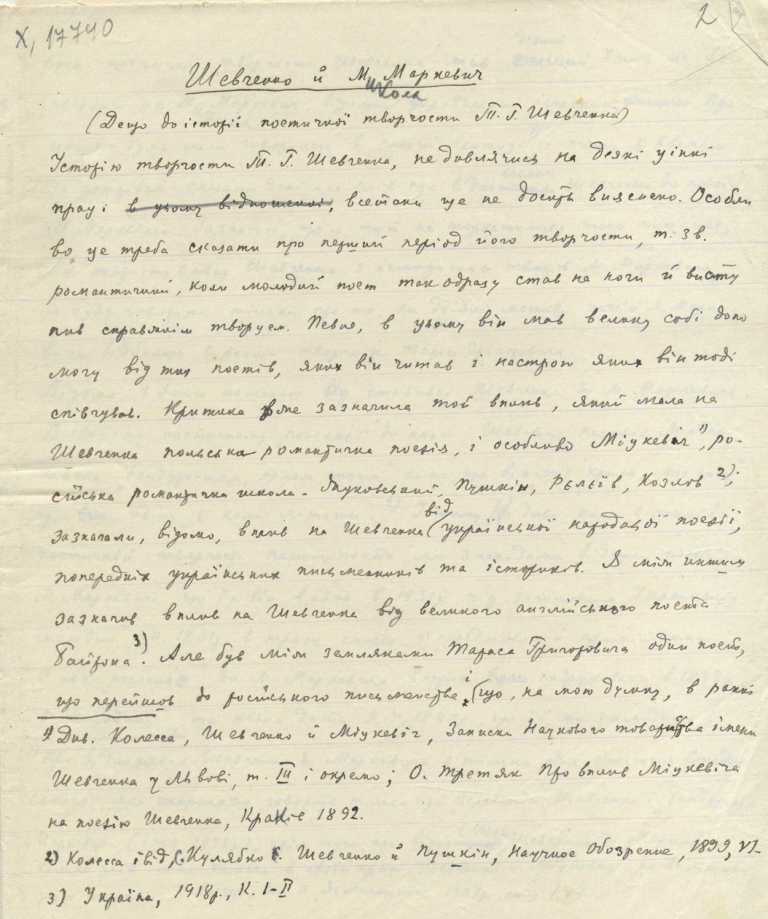 X, 17740
2
Шевченко й Микола Маркевич
(Дещо до історії поетичної творчости Т. Г. Шевченка)
Історію творчости Т. Г. Шевченка, не дивлячись на деякі цінні
праці в цьому відношенні, всетаки ще не досить вияснено. Особли
во це треба сказати про перший період його творчости, т. зв.
романтичний, коли молодий поет так одразу став на ноги й висту
пив справжнім творцем. Певне, в цьому він мав велику собі допо
могу від тих поетів, яких він читав і настрою яких він тоді
співчував. Критика вже зазначила той вплив, який мала на
Шевченка польська романтична поезія, і особливо Міцкевич 1), ро-
сійська романтична школа - Жуковський, Пушкін, Рєлєїв, Козлов 2);
зазначали, відомо, вплив на Шевченка від української народньої поезії,
попередніх українських письменників та істориків. Я між иншим
зазначив вплив на Шевченка від великого англійського поета
Байрона 3). Але був між земляками Тараса Григоровича один поет,
що перейшов до російського письменства і що, на мою думку, в ранні
1) Див. Колесса, Шевченко й Міцкевіч, Записки Наукового товариства імени
Шевченка у Львові, т. III і окремо; О. Третяк Про вплив Міцкевіча
на поезію Шевченка, Краків 1892.
2) Колесса ibid, Кулябко Шевченко й Пушкін, Научное Обозрение, 1899, VI.
3) Україна, 1918р., К. I-II